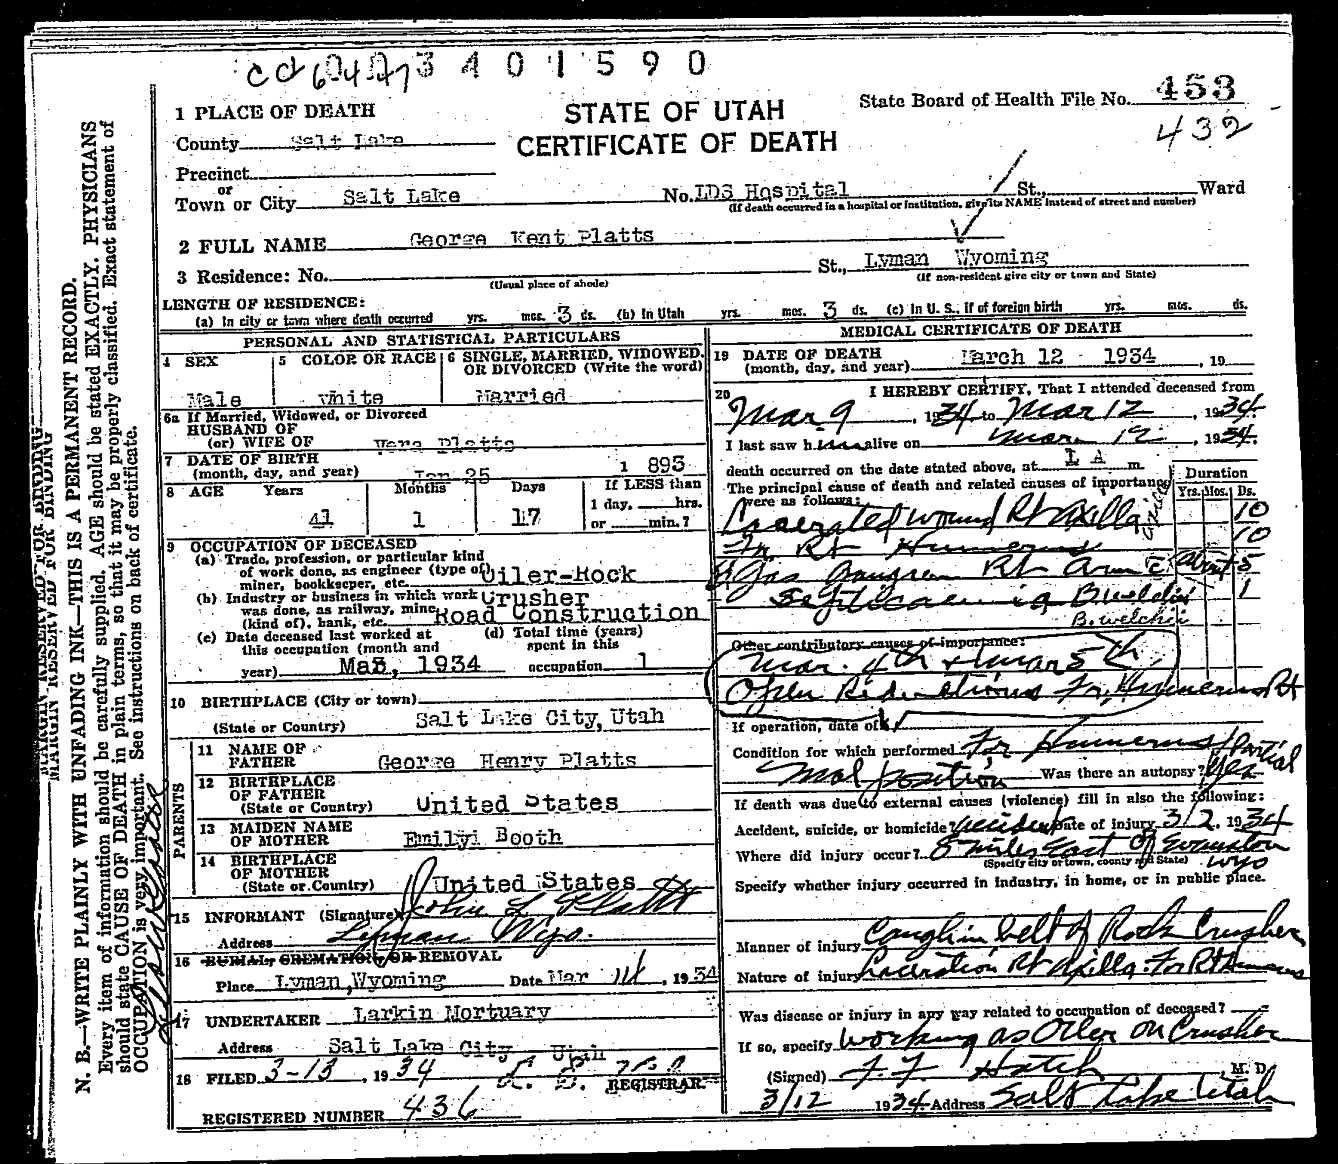 3401590
1 PLACE OF DEATH
STATE OF UTAH
CERTIFICATE OF DEATH
State Board of Health File No. 453
432
County Salt Lake
Precinct
or
Town or City Salt Lake No. LDS Hospital St., Ward
(If death occurred in a hospital or institution, give its NAME instead of street and number)
2 FULL NAME George Kent Platts
3 Residence: No. St., Lyman Wyoming
(Usual place of abode) (If non-resident give city or town and State)
LENGTH OF RESIDENCE:
(a) In city or town where death occurred yrs. mos. 3 ds. (b) In Utah yrs. mos. 3 ds. (c) In U. S., if of foreign birth yrs. mos. ds.
PERSONAL AND STATISTICAL PARTICULARS
4 SEX
Male
5 COLOR OR RACE
White
6 SINGLE, MARRIED, WIDOWED, OR DIVORCED (Write the word)
Married
6a If Married, Widowed, or Divorced
HUSBAND OF
(or) WIFE OF Vera Platts
7 DATE OF BIRTH
(month, day, and year) Jan 25 1893
8 AGE Years Months Days If LESS than
1 day, hrs.
or min.?
41 1 17
9 OCCUPATION OF DECEASED
(a) Trade, profession, or particular kind
of work done, as engineer (type of)
miner, bookkeeper, etc. Oiler-Rock
(b) Industry or business in which work Crusher
was done, as railway, mine
(kind of), bank, etc. Road Construction
(c) Date deceased last worked at
this occupation (month and
year) Mar, 1934
(d) Total time (years)
spent in this
occupation 1
10 BIRTHPLACE (City or town)
(State or Country) Salt Lake City, Utah
PARENTS
11 NAME OF
FATHER George Henry Platts
12 BIRTHPLACE
OF FATHER
(State or Country) United States
13 MAIDEN NAME
OF MOTHER Emily Booth
14 BIRTHPLACE
OF MOTHER
(State or Country) United States
15 INFORMANT (Signature) John L Platts
Address Lyman Wyo.
16 BURIAL, CREMATION, OR REMOVAL
Place Lyman, Wyoming Date Mar 14, 1934
17 UNDERTAKER Larkin Mortuary
Address Salt Lake City Utah
18 FILED 3-13, 1934
REGISTRAR
REGISTERED NUMBER 436
MEDICAL CERTIFICATE OF DEATH
19 DATE OF DEATH
(month, day, and year) March 12 1934, 19
20 I HEREBY CERTIFY, That I attended deceased from
Mar 9, 1934 to Mar 12, 1934
I last saw him alive on Mar. 12, 1934.
death occurred on the date stated above, at 1 A m.
The principal cause of death and related causes of importance
were as follows:
Duration
Yrs. Mos. Ds.
Lacerated wound Rt axilla 10
Fr Rt Humerus 10
Gas Gangrene Rt arm about 5
Septicaemia B welchii 1
B. welchii
Other contributory causes of importance:
Mar. 4th & Mar 5th
Open Reductions Fr. Humerus Rt
If operation, date of
Condition for which performed Fr Humerus
Malposition Was there an autopsy? Yes Partial
If death was due to external causes (violence) fill in also the following:
Accident, suicide, or homicide? Accident Date of injury 3/2, 1934
Where did injury occur? 8 miles East of Evanston
(Specify city or town, county and State) Wyo
Specify whether injury occurred in industry, in home, or in public place.
Manner of injury Caught in belt of Rock Crusher
Nature of injury Laceration Rt Axilla. Fr Rt Humerus
Was disease or injury in any way related to occupation of deceased?
If so, specify Working as Oiler on Crusher
(Signed) F. F. Hatch, M. D.
3/12 1934 Address Salt Lake Utah
MARGIN RESERVED FOR BINDING
MARGIN RESERVED FOR BINDING
N. B.—WRITE PLAINLY WITH UNFADING INK—THIS IS A PERMANENT RECORD.
Every item of information should be carefully supplied. AGE should be stated EXACTLY. PHYSICIANS
should state CAUSE OF DEATH in plain terms, so that it may be properly classified. Exact statement of
OCCUPATION is very important. See instructions on back of certificate.